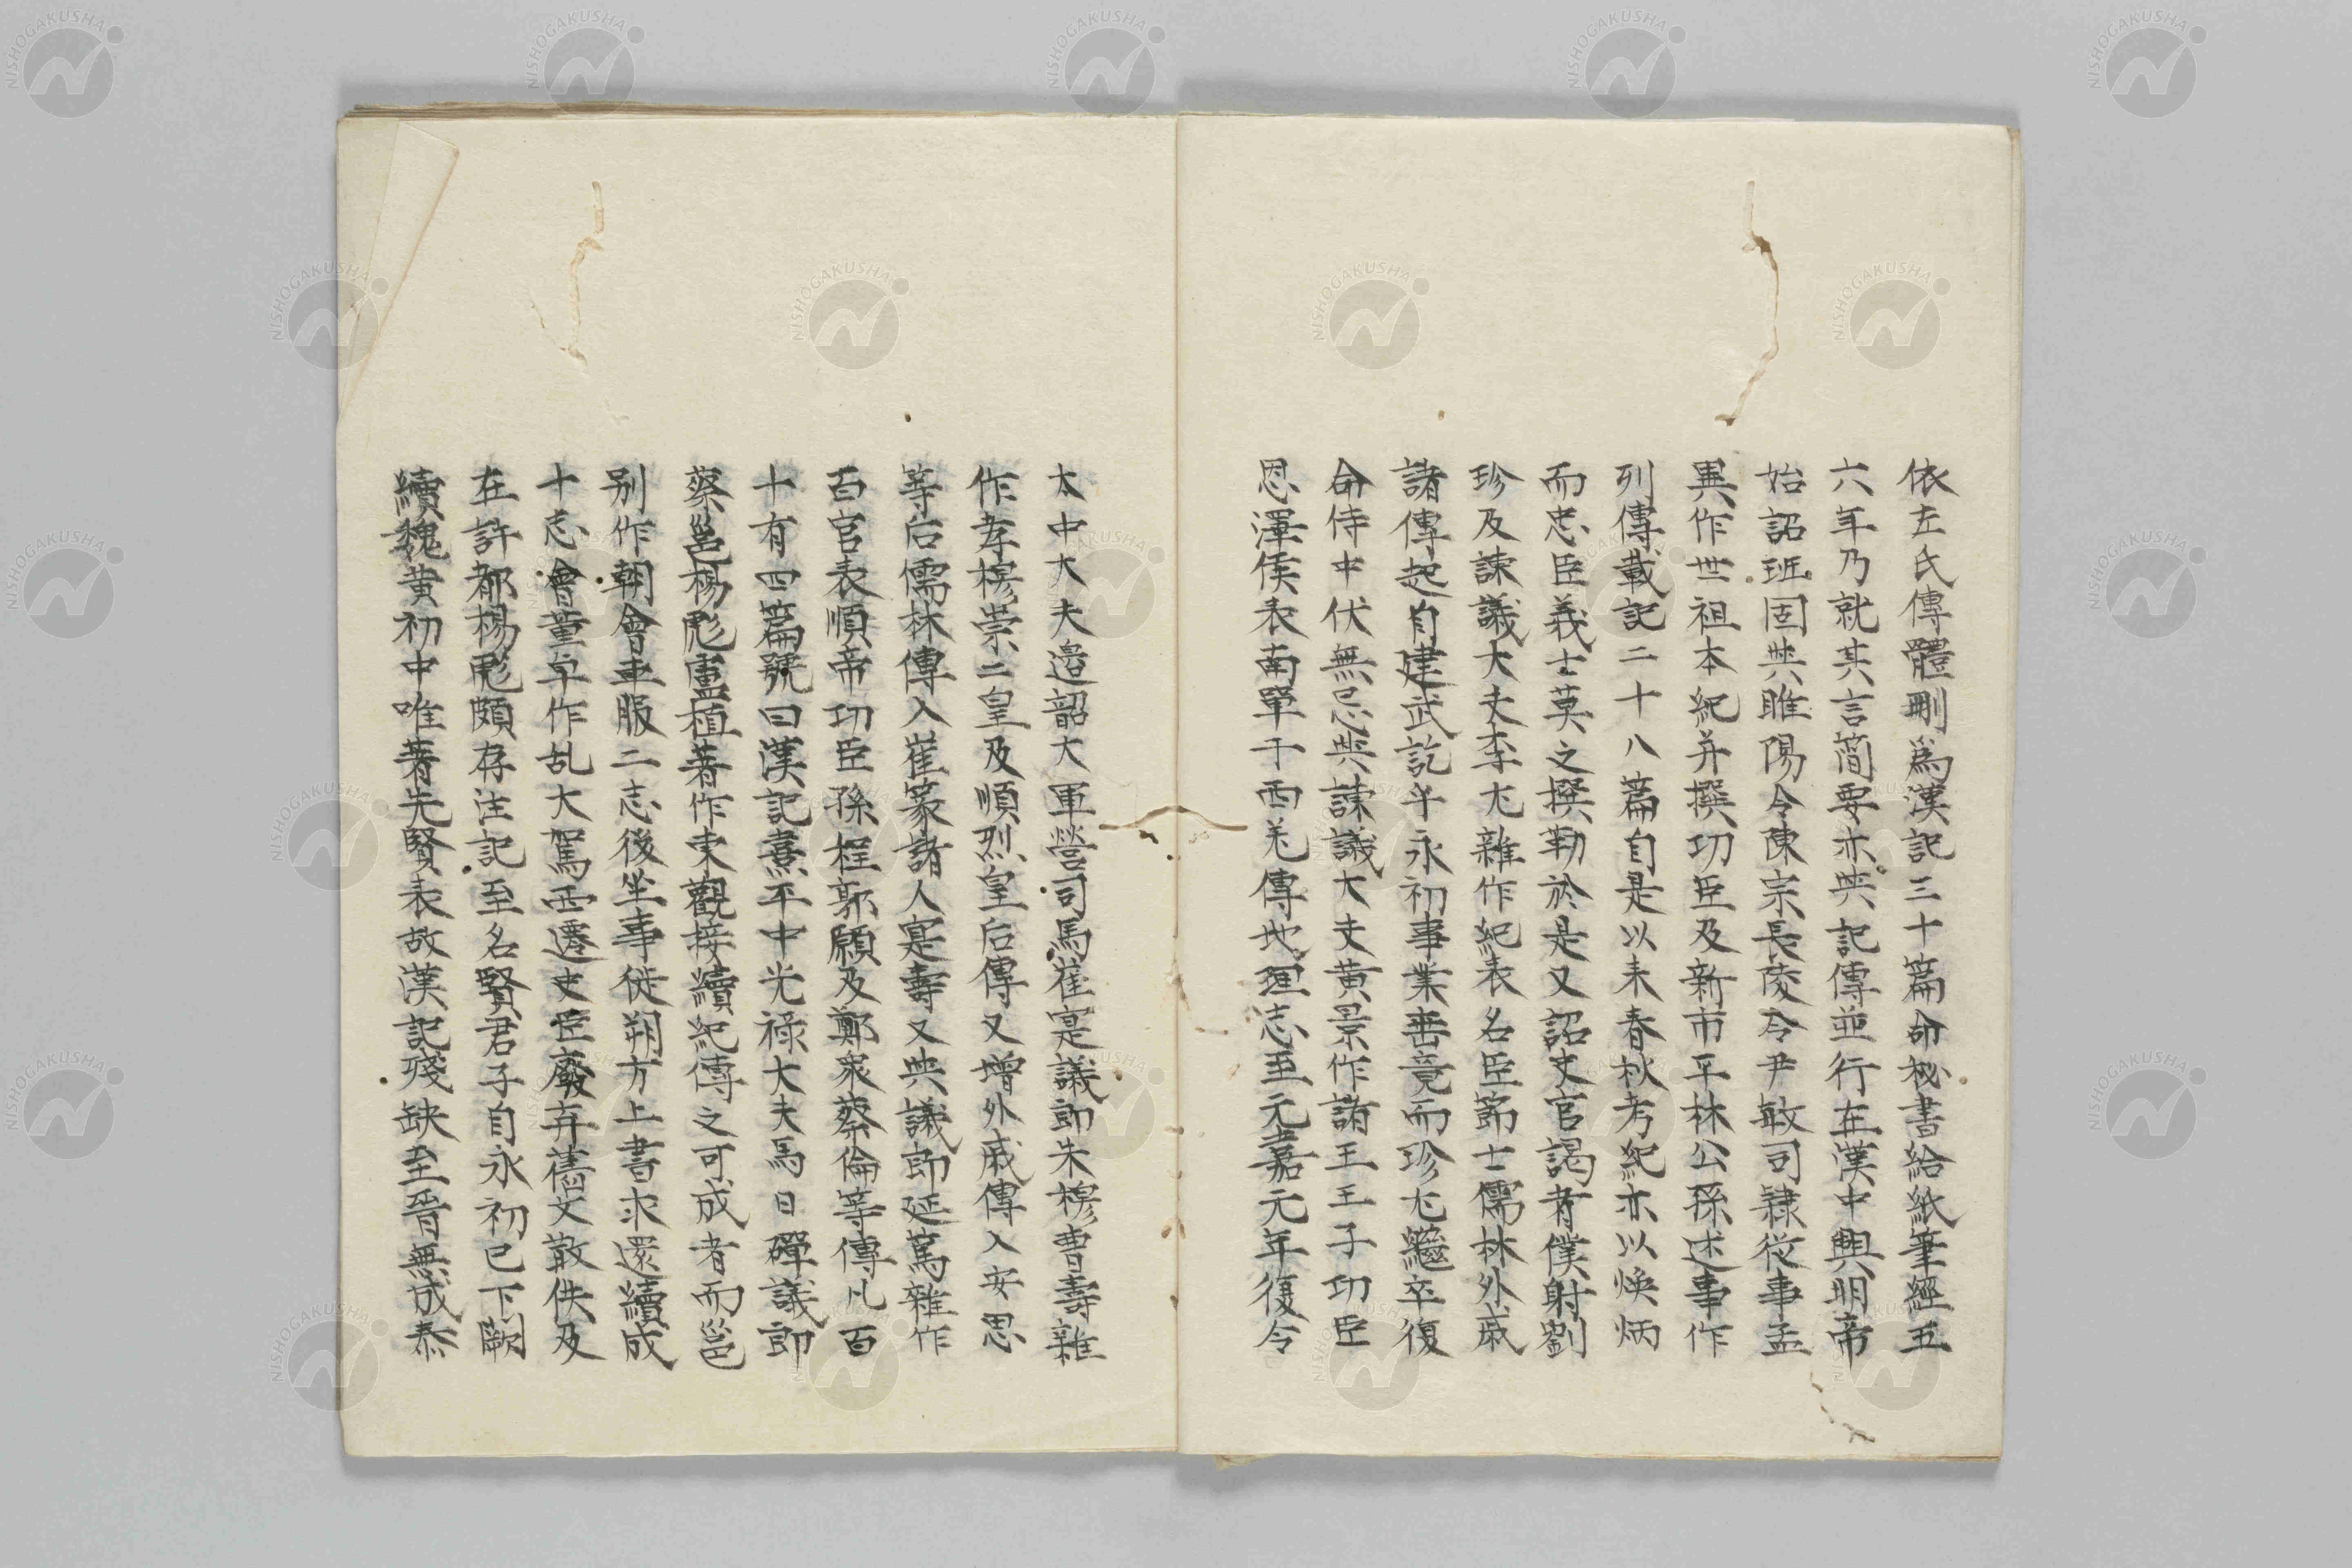 依左氏傳體刪爲漢記三十篇命秘書給紙筆經五
六年乃就其言簡要亦與記傳並行在漢中興明帝
始詔班固與睢陽令陳宗長陵令尹敏司隷從事孟
異作世祖本紀并撰功臣及新市平林公孫述事作
列傳載記二十八篇自是以來春秋考紀亦以煥炳
而忠臣義士莫之撰勒於是又詔史官謁者僕射劉
珍及諫議大夫李尤雜作紀表名臣節士儒林外戚
諸傳起自建武訖乎永初事業垂竟而珍尤繼卒復
命侍中伏無忌與諫議大夫黄景作諸王王子功臣
恩澤侯表南單于西羌傳地理志至元嘉元年復令
太中大夫邉韶大軍營司馬崔寔議郎朱穆曹壽雜
作孝穆崇二皇及順烈皇后傳又增外戚傳入安思
等后儒林傳入崔篆諸人寔壽又與議郎延篤雜作
百官表順帝功臣孫程郭願及鄭衆蔡倫等傳凡百
十有四篇號曰漢記熹平中光祿大夫馬日磾議郎
蔡邕楊彪盧植著作東觀接續紀傳之可成者而邕
别作朝會車服二志後坐事徙朔方上書求還續成
十志會董卓作乱大駕西遷史臣廢弃舊文散佚及
在許都楊彪頗存注記至名賢君子自永初已下闕
續魏黄初中唯著先賢表故漢記殘缺至晉無成泰
NISHOGAKUSHA